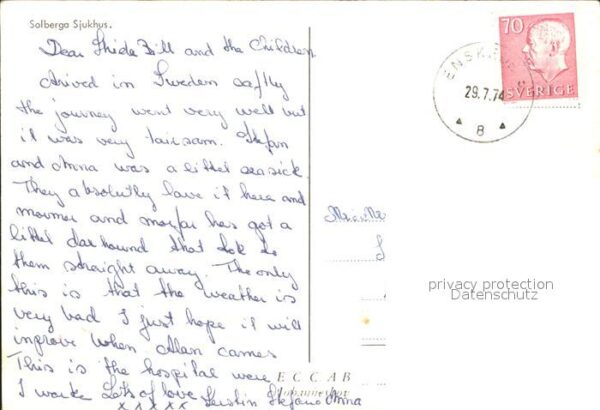 Solberga Sjukhus.
Dear Bill and the Children
Arived in Sweden saftly
the journey went very well but
it was very tairsam. Stefan
and Anna was a littel seasick.
They absolutly love it here and
mormor and morfar has got a
littel dachound that tok to
them straight away. The only
this is that the weather is
very bad I just hope it will
improve When Alan comes
This is the hospital were
I worke Lots of love Kerstin Stefan o Anna
x x x x x
70
SVERIGE
ENSKEDE
29.7.74
8
privacy protection
Datenschutz
ECCAB